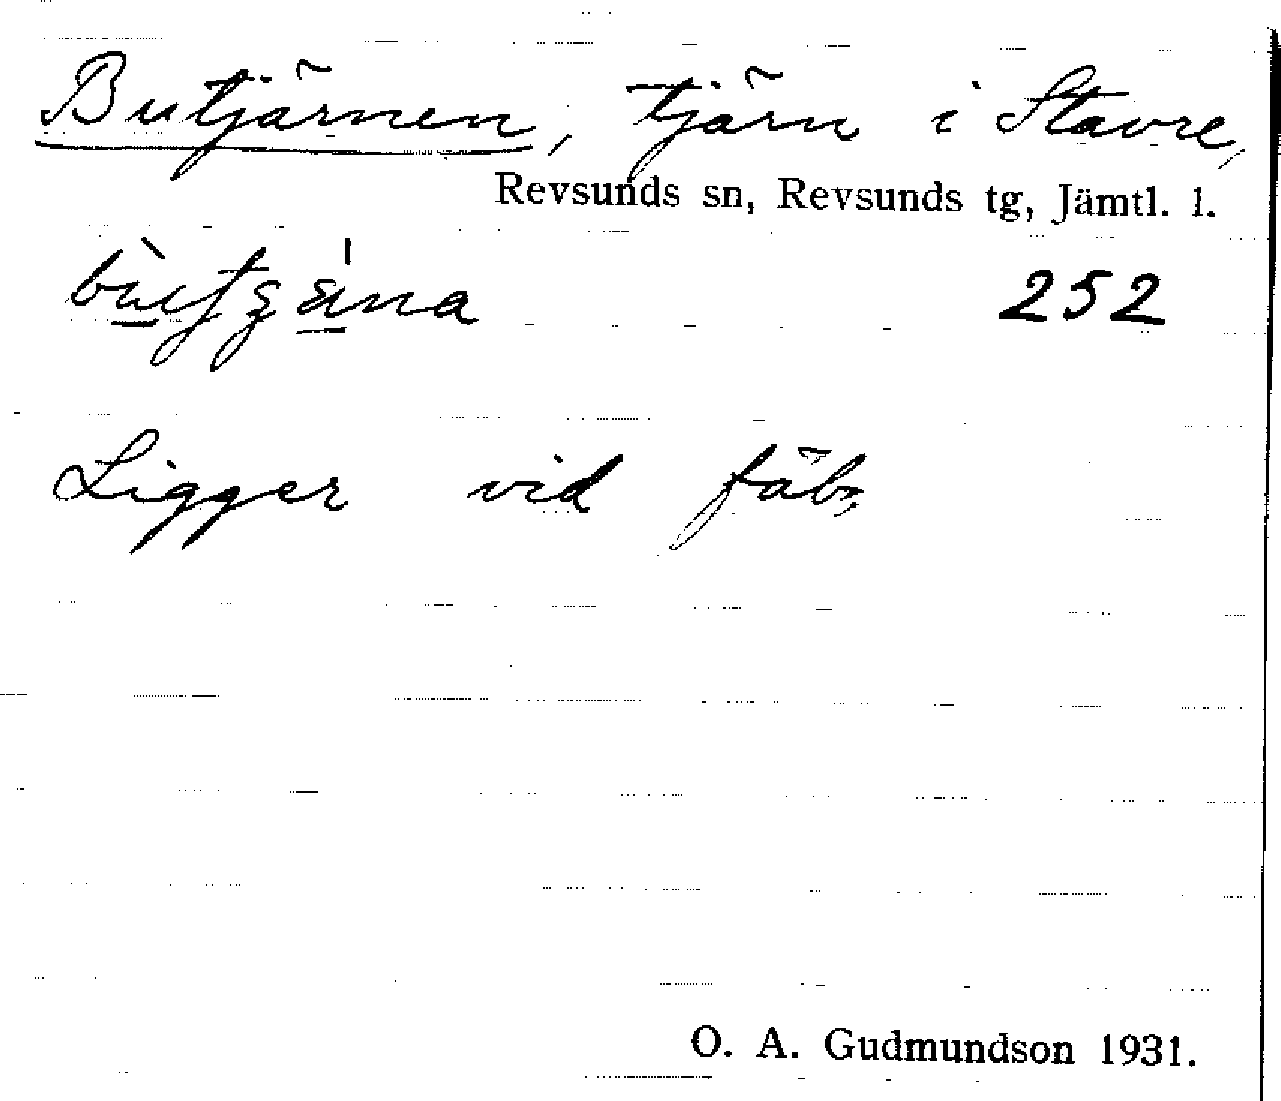 Butjärnen, tjärn i Stavre,
Revsunds sn, Revsunds tg, Jämtl. l.
252
Ligger vid fäb.
O. A. Gudmundson 1931.